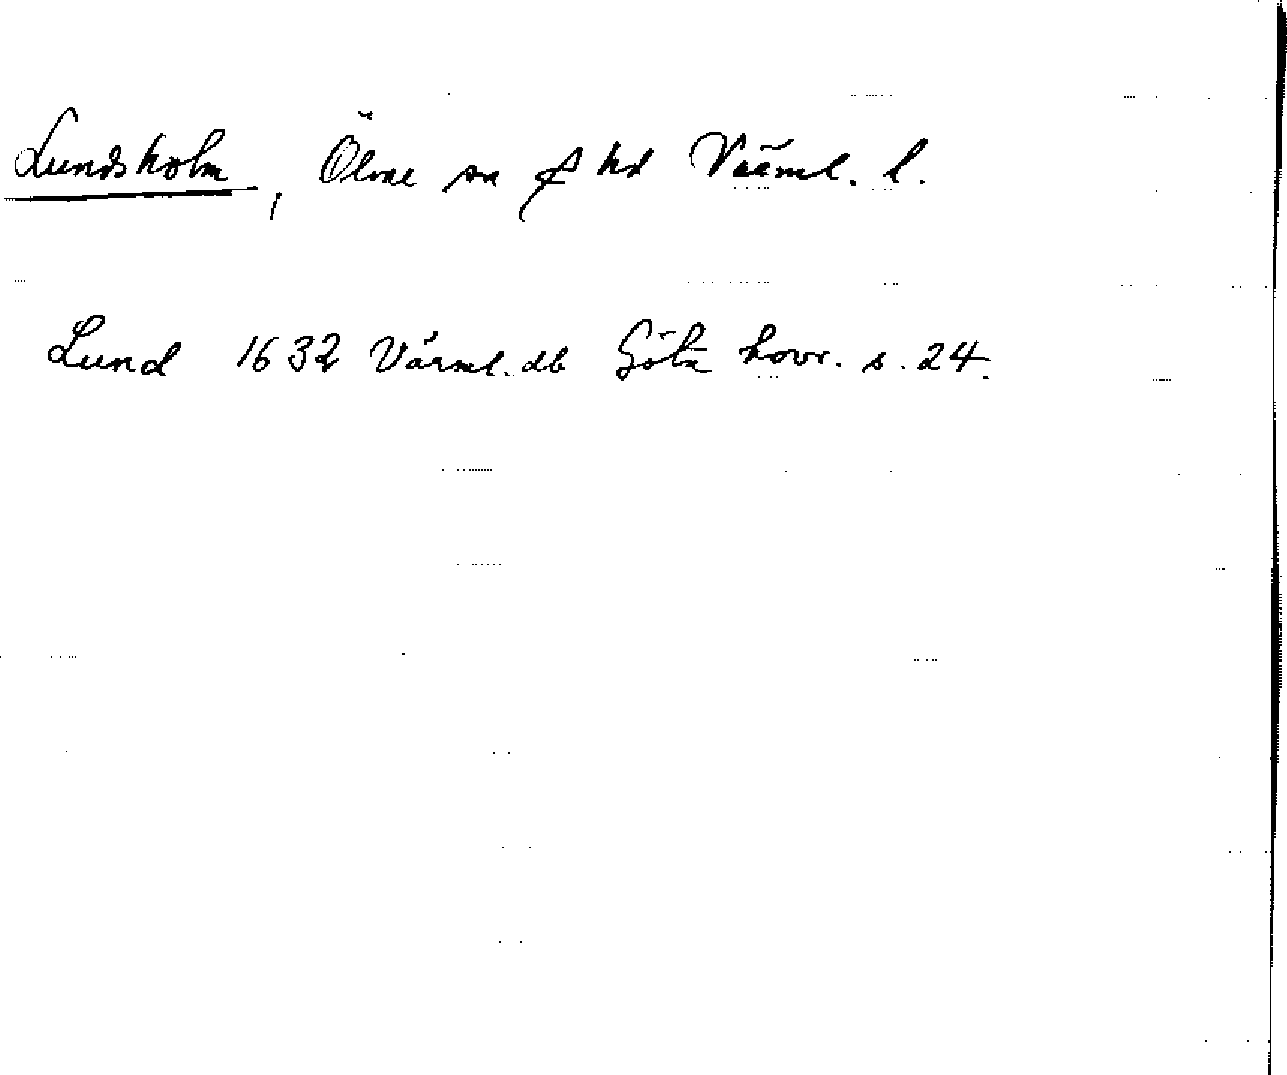 Lundsholm, Ölme sn & hd Värml. l.
Lund 1632 Värml. db Göta hovr. s. 24.